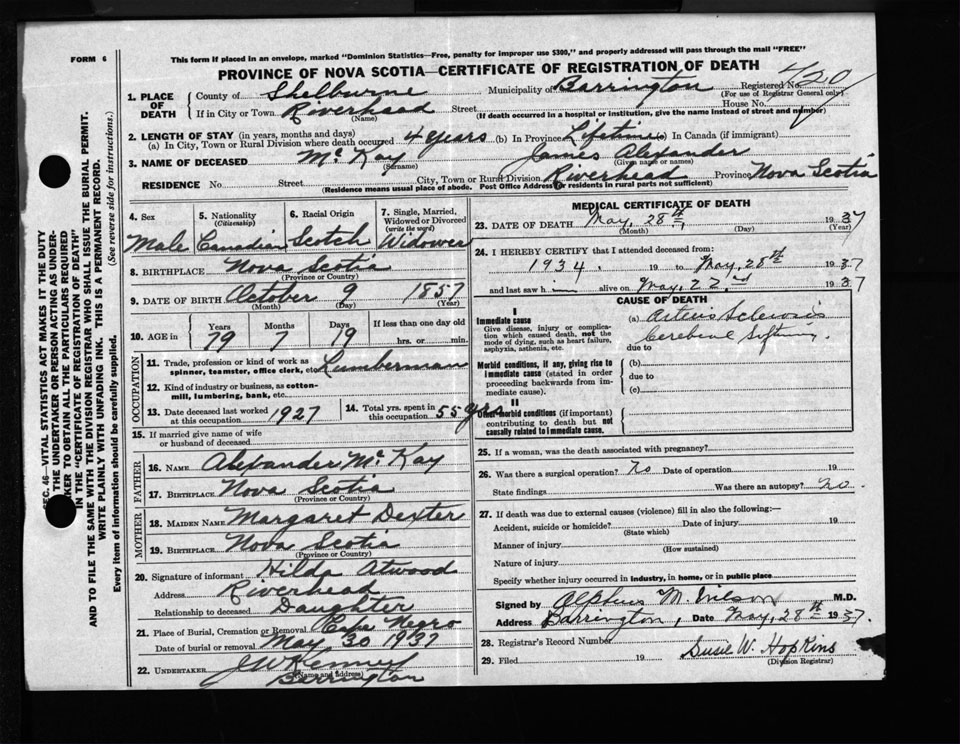 FORM 6
This form if placed in an envelope, marked "Dominion Statistics—Free, penalty for improper use $300," and properly addressed will pass through the mail "FREE"
PROVINCE OF NOVA SCOTIA—CERTIFICATE OF REGISTRATION OF DEATH
SEC. 46—VITAL STATISTICS ACT MAKES IT THE DUTY
THE UNDERTAKER OR PERSON ACTING AS UNDER-
KER TO OBTAIN ALL THE PARTICULARS REQUIRED
IN THE "CERTIFICATE OF REGISTRATION OF DEATH"
AND TO FILE THE SAME WITH THE DIVISION REGISTRAR WHO SHALL ISSUE THE BURIAL PERMIT.
WRITE PLAINLY WITH UNFADING INK. THIS IS A PERMANENT RECORD.
Every item of information should be carefully supplied. (See reverse side for instructions.)
1. PLACE OF DEATH County of Shelburne Municipality of Barrington Registered No. 420
(For use of Registrar General only)
If in City or Town Riverhead Street House No.
(Name) (If death occurred in a hospital or institution, give the name instead of street and number)
2. LENGTH OF STAY (in years, months and days)
(a) In City, Town or Rural Division where death occurred 4 years (b) In Province Lifetime (c) In Canada (if immigrant)
3. NAME OF DECEASED McKay James Alexander
(Surname) (Given name or names)
RESIDENCE No Street City, Town or Rural Division Riverhead Province Nova Scotia
(Residence means usual place of abode. Post Office Address for residents in rural parts not sufficient)
4. Sex 5. Nationality (Citizenship) 6. Racial Origin 7. Single, Married, Widowed or Divorced (write the word)
Male Canadian Scotch Widower
8. BIRTHPLACE Nova Scotia
(Province or Country)
9. DATE OF BIRTH October 9 1857
(Month) (Day) (Year)
10. AGE in Years Months Days If less than one day old
79 7 19 hrs. or min.
OCCUPATION
11. Trade, profession or kind of work as spinner, teamster, office clerk, etc. Lumberman
12. Kind of industry or business, as cotton-mill, lumbering, bank, etc.
13. Date deceased last worked at this occupation 1927 14. Total yrs. spent in this occupation 55 yrs
15. If married give name of wife or husband of deceased
FATHER
16. NAME Alexander McKay
17. BIRTHPLACE Nova Scotia
(Province or Country)
MOTHER
18. MAIDEN NAME Margaret Dexter
19. BIRTHPLACE Nova Scotia
(Province or Country)
20. Signature of informant Hilda Atwood
Address Riverhead
Relationship to deceased Daughter
21. Place of Burial, Cremation or Removal Cape Negro
Date of burial or removal May 30 1937
22. UNDERTAKER J W Kenney
(Name and address)
Barrington
MEDICAL CERTIFICATE OF DEATH
23. DATE OF DEATH May, 28th, 1937
(Month) (Day) (Year)
24. I HEREBY CERTIFY that I attended deceased from:
1934. 19 to May, 28th 1937
and last saw him alive on May, 22nd 1937
CAUSE OF DEATH
I
Immediate cause
Give disease, injury or complication which caused death, not the mode of dying, such as heart failure, asphyxia, asthenia, etc.
(a) Arterio Sclerosis
Cerebral Softening.
due to
Morbid conditions, if any, giving rise to immediate cause (stated in order proceeding backwards from immediate cause).
(b)
due to
(c)
II
Other morbid conditions (if important) contributing to death but not causally related to immediate cause.
25. If a woman, was the death associated with pregnancy?
26. Was there a surgical operation? No Date of operation 19
State findings Was there an autopsy? No.
27. If death was due to external causes (violence) fill in also the following:—
Accident, suicide or homicide? Date of injury 19
(State which)
Manner of injury
(How sustained)
Nature of injury
Specify whether injury occurred in industry, in home, or in public place
Signed by Alpheus M. Wilson M.D.
Address Barrington, Date May, 28th 1937.
28. Registrar's Record Number
29. Filed 19 Susie W. Hopkins
(Division Registrar)